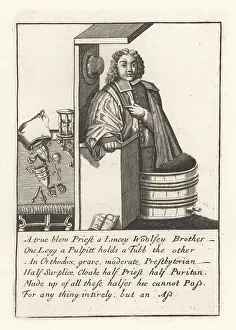 A true blew Priest a Lincey Woolsey Brother
One Legg a Pulpitt holds a Tubb the other
An Orthodox, grave, moderate, Presbyterian
Half Surplice Cloake half Priest half Puritan.
Made up of all these halfes hee cannot Pass.
For any thing intirely, but an Ass